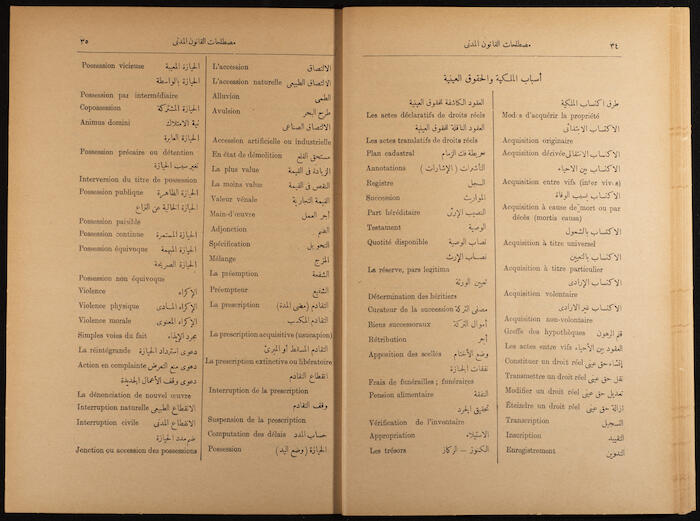 ٣٤
مصطلحات القانون المدنى
أسباب الملكية والحقوق العينية
طرق اكتساب الملكية
Modes d'acquérir la propriété
الاكتساب الابتدائى
Acquisition originaire
Acquisition dérivée الاكتساب الانتقالى
الاكتساب بين الاحياء
Acquisition entre vifs (inter vivos)
الاكتساب بسبب الوفاة
Acquisition à cause de mort ou par
décès (mortis causa)
الاكتساب بالشمول
Acquisition à titre universel
الاكتساب بالتعيين
Acquisition à titre particulier
الاكتساب الإرادى
Acquisition volontaire
الاكتساب غير الارادى
Acquisition non-volontaire
Greffe des hypothèques قلم الرهون
Les actes entre vifs العقود بين الأحياء
إنشاء حق عينى
Constituer un droit réel
نقل حق عينى
Transmettre un droit réel
تعديل حق عينى
Modifier un droit réel
ازالة حق عينى
Éteindre un droit réel
Transcription التسجيل
Inscription التقييد
Enregistrement التدوين
العقود الكاشفة لحقوق العينية
Les actes déclaratifs de droits réels
العقود الناقلة لحقوق العينية
Les actes translatifs de droits réels
Plan cadastral خريطة فك الزمام
Annotations التأشيرات (الإشارات)
Registre السجل
Succession المواريث
Part héréditaire النصيب الإرثى
Testament الوصية
Quotité disponible نصاب الوصية
نصاب الإرث
La réserve, pars legitima
تعيين الورثة
Détermination des héritiers
Curateur de la succession مصفى التركة
Biens successoraux أموال التركة
Rétribution أجر
Apposition des scellés وضع الأختام
نفقات الجنازة
Frais de funérailles; funéraires
Pension alimentaire النفقة
تحقيق الجرد
Vérification de l'inventaire
Appropriation الاستيلاء
Les trésors الكنوز — الركاز
٣٥
مصطلحات القانون المدنى
L'accession الالتصاق
L'accession naturelle الالتصاق الطبيعى
Alluvion الطمى
Avulsion طرح البحر
الالتصاق الصناعى
Accession artificielle ou industrielle
En état de démolition مستحق القلع
La plus value الزيادة فى القيمة
La moins value النقص فى القيمة
Valeur vénale القيمة التجارية
Main-d'œuvre أجر العمل
Adjonction الضم
Spécification التحويل
Mélange المزج
La préemption الشفعة
Préempteur الشفيع
La prescription التقادم (مضى المدة)
التقادم المكسب
La prescription acquisitive (usucapion)
التقادم المسقط أو المبرئ
La prescription extinctive ou libératoire
انقطاع التقادم
Interruption de la prescription
وقف التقادم
Suspension de la prescription
Computation des délais حساب المدد
Possession الحيازة (وضع اليد)
Possession vicieuse الحيازة المعيبة
الحيازة بالواسطة
Possession par intermédiaire
Copossession الحيازة المشتركة
Animus domini نية الامتلاك
الحيازة العابرة
Possession précaire ou détention
تغيير سبب الحيازة
Interversion du titre de possession
Possession publique الحيازة الظاهرة
الحيازة الخالية من النزاع
Possession paisible
Possession continue الحيازة المستمرة
Possession équivoque الحيازة المبهمة
الحيازة الصريحة
Possession non équivoque
Violence الإكراه
Violence physique الإكراه المادى
Violence morale الإكراه المعنوى
Simples voies du fait مجرد الإيذاء
La réintégrande دعوى استرداد الحيازة
Action en complainte دعوى منع التعرض
دعوى وقف الأعمال الجديدة
La dénonciation de nouvel œuvre
Interruption naturelle الانقطاع الطبيعى
Interruption civile الانقطاع المدنى
ضم مدد الحيازة
Jonction ou accession des possessions